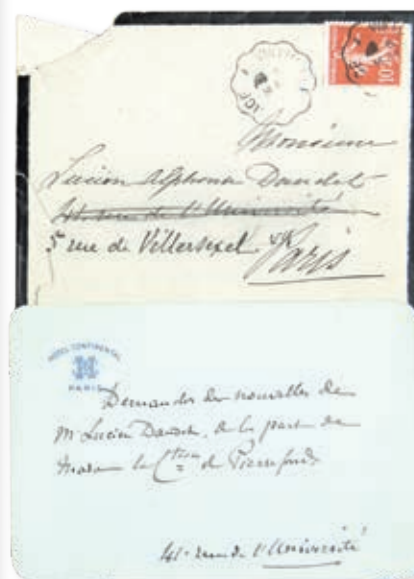 10
Monsieur
Lucien Alphonse Daudet
41 rue de l'Université
5 rue de Villersexel
Paris
HOTEL CONTINENTAL
PARIS
Demander des nouvelles de
Mr Lucien Daudet, de la part de
Madame la Ctesse de Pierrefonds
41 rue de l'Université